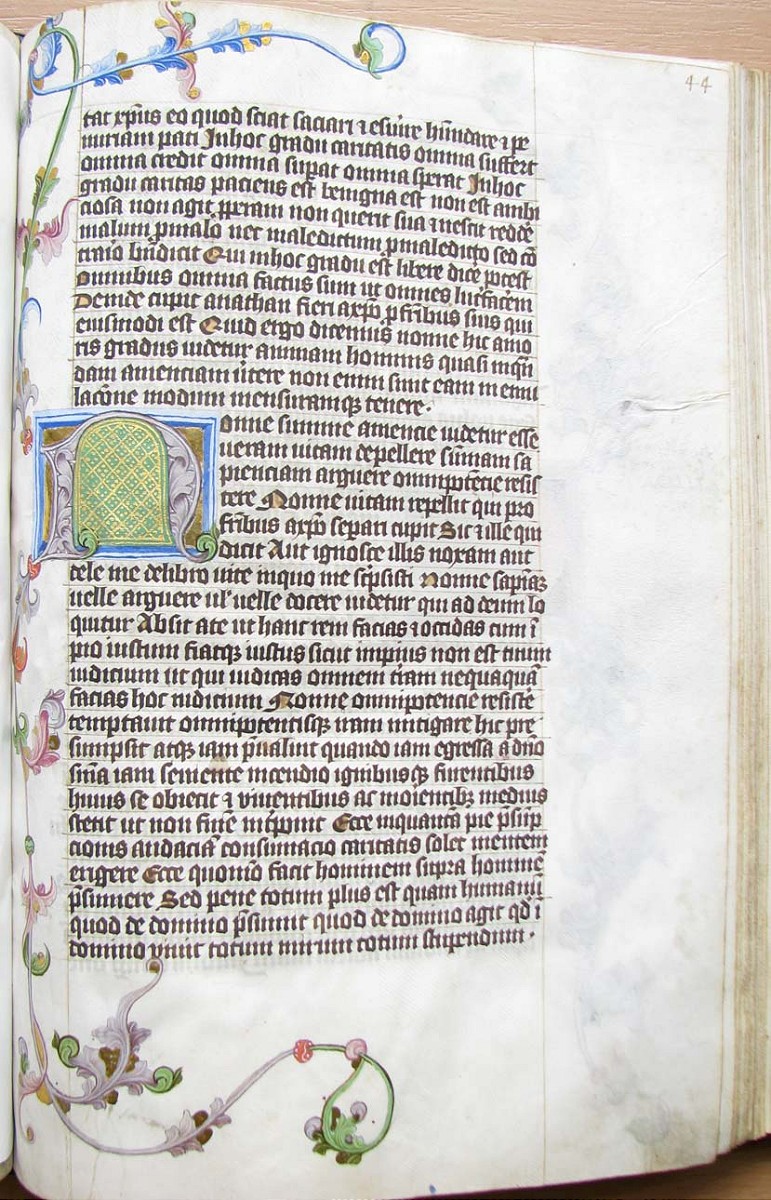 44
tat xpūs eo quod sciat saciari ⁊ esurire hūndare ⁊ pe
nuriam pati Inhoc gradu caritatis omnia suffert
omnia credit omnia supat omnia sperat Inhoc
gradu caritas paciens est benigna est non est ambi
ciosa non agit pperam non querit sua ⁊ nescit reddē
malum pmalo nec maledictum pmaledicto sed cō
trario bn̄dicit Qui inhoc gradu est libere dicē potest
Omnibus omnia factus sum ut omnes lucrifacem
Deinde cupit anathan fieri axpō p frībus suis qui
eiusmodi est Quid ergo dicemus nonne hic amo
ris gradus uidetur animam hominis quasi inquā
dam amenciam ūtere non enim sinit eam in emu
lacōne modum mensuramqꝫ tenere·
Nonne summe amencie uidetur esse
ueram uitam depellere sūmam sa
pienciam arguere omnipotēcie resis
tere Nonne uitam repellit qui pro
frībus axpō separi cupit Sic ⁊ ille qui
dicit Aut ignosce illis noxam aut
dele me delibro uite inquo me scpsisti Nonne sapiāꝫ
uelle arguere ul' uelle docere uidetur qui ad deum lo
quitur Absit ate ut hanc rem facias ⁊ occidas cum ī
pio iustum fiatqꝫ iustus sicut impius non est tuum
iudicium ut qui iudicas omnem tr̄am nequaquā
facias hoc iudicium Nonne omnipotencie resistē
temptauit omnipotentisqꝫ iram mitigare hic pre
sumpsit atqꝫ iam pualuit quando iam egressa a dn̄o
snīa iam seuiente incendio ignibusqꝫ furentibus
huius se obiecit ⁊ viuentibus ac moientibꝫ medius
stetit ut non furē intponit Ecce inquantā pie psūp
cionis audaciā consumacio caritatis solet mentem
erigere Ecce quomō facit hominem supra hominē
psumere Sed pene totum plus est quam humanū
quod de domino psumit quod de domino agit qd̄ ī
domino viuit totum mirum totum stupendum ·